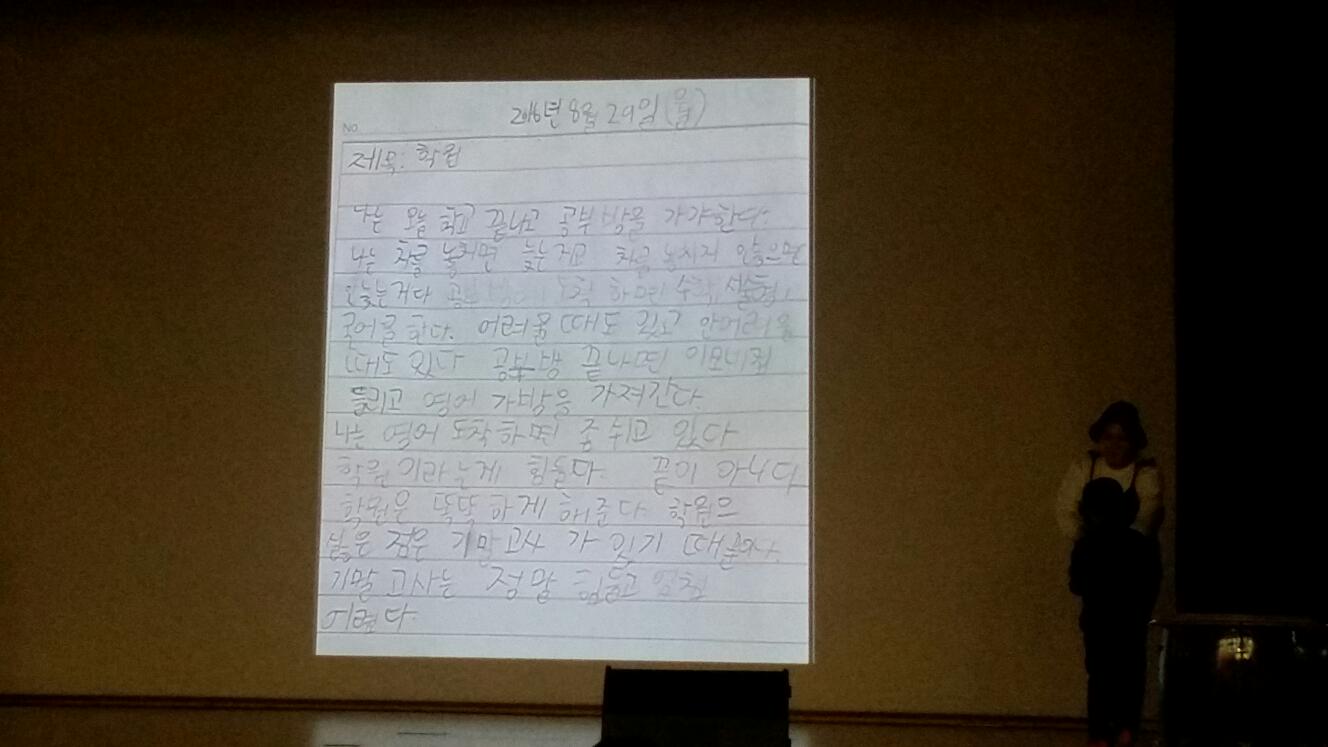 2016년 8월 29일 (월)
No.
제목: 학원
나는 오늘 학교 끝나고 공부방을 가야한다.
나는 차를 놓치면 늦는거고 차를 놓치지 안으면
안늦는거다 공부방에 도착 하면 수학,
국어를 한다. 어려울 때도 있고 안어려울
때도 있다 공부방 끝나면 이모네
들리고 영어 가방을 가져간다.
나는 영어 도착하면 좀 쉬고 있다
학원 이라는게 힘들다. 끝이 아니다
학원은 똑똑하게 해준다 학원으
싫은 점은 기말고사 가 있기 때문이다.
기말고사는 정말 힘들고 엄청
어렵다.